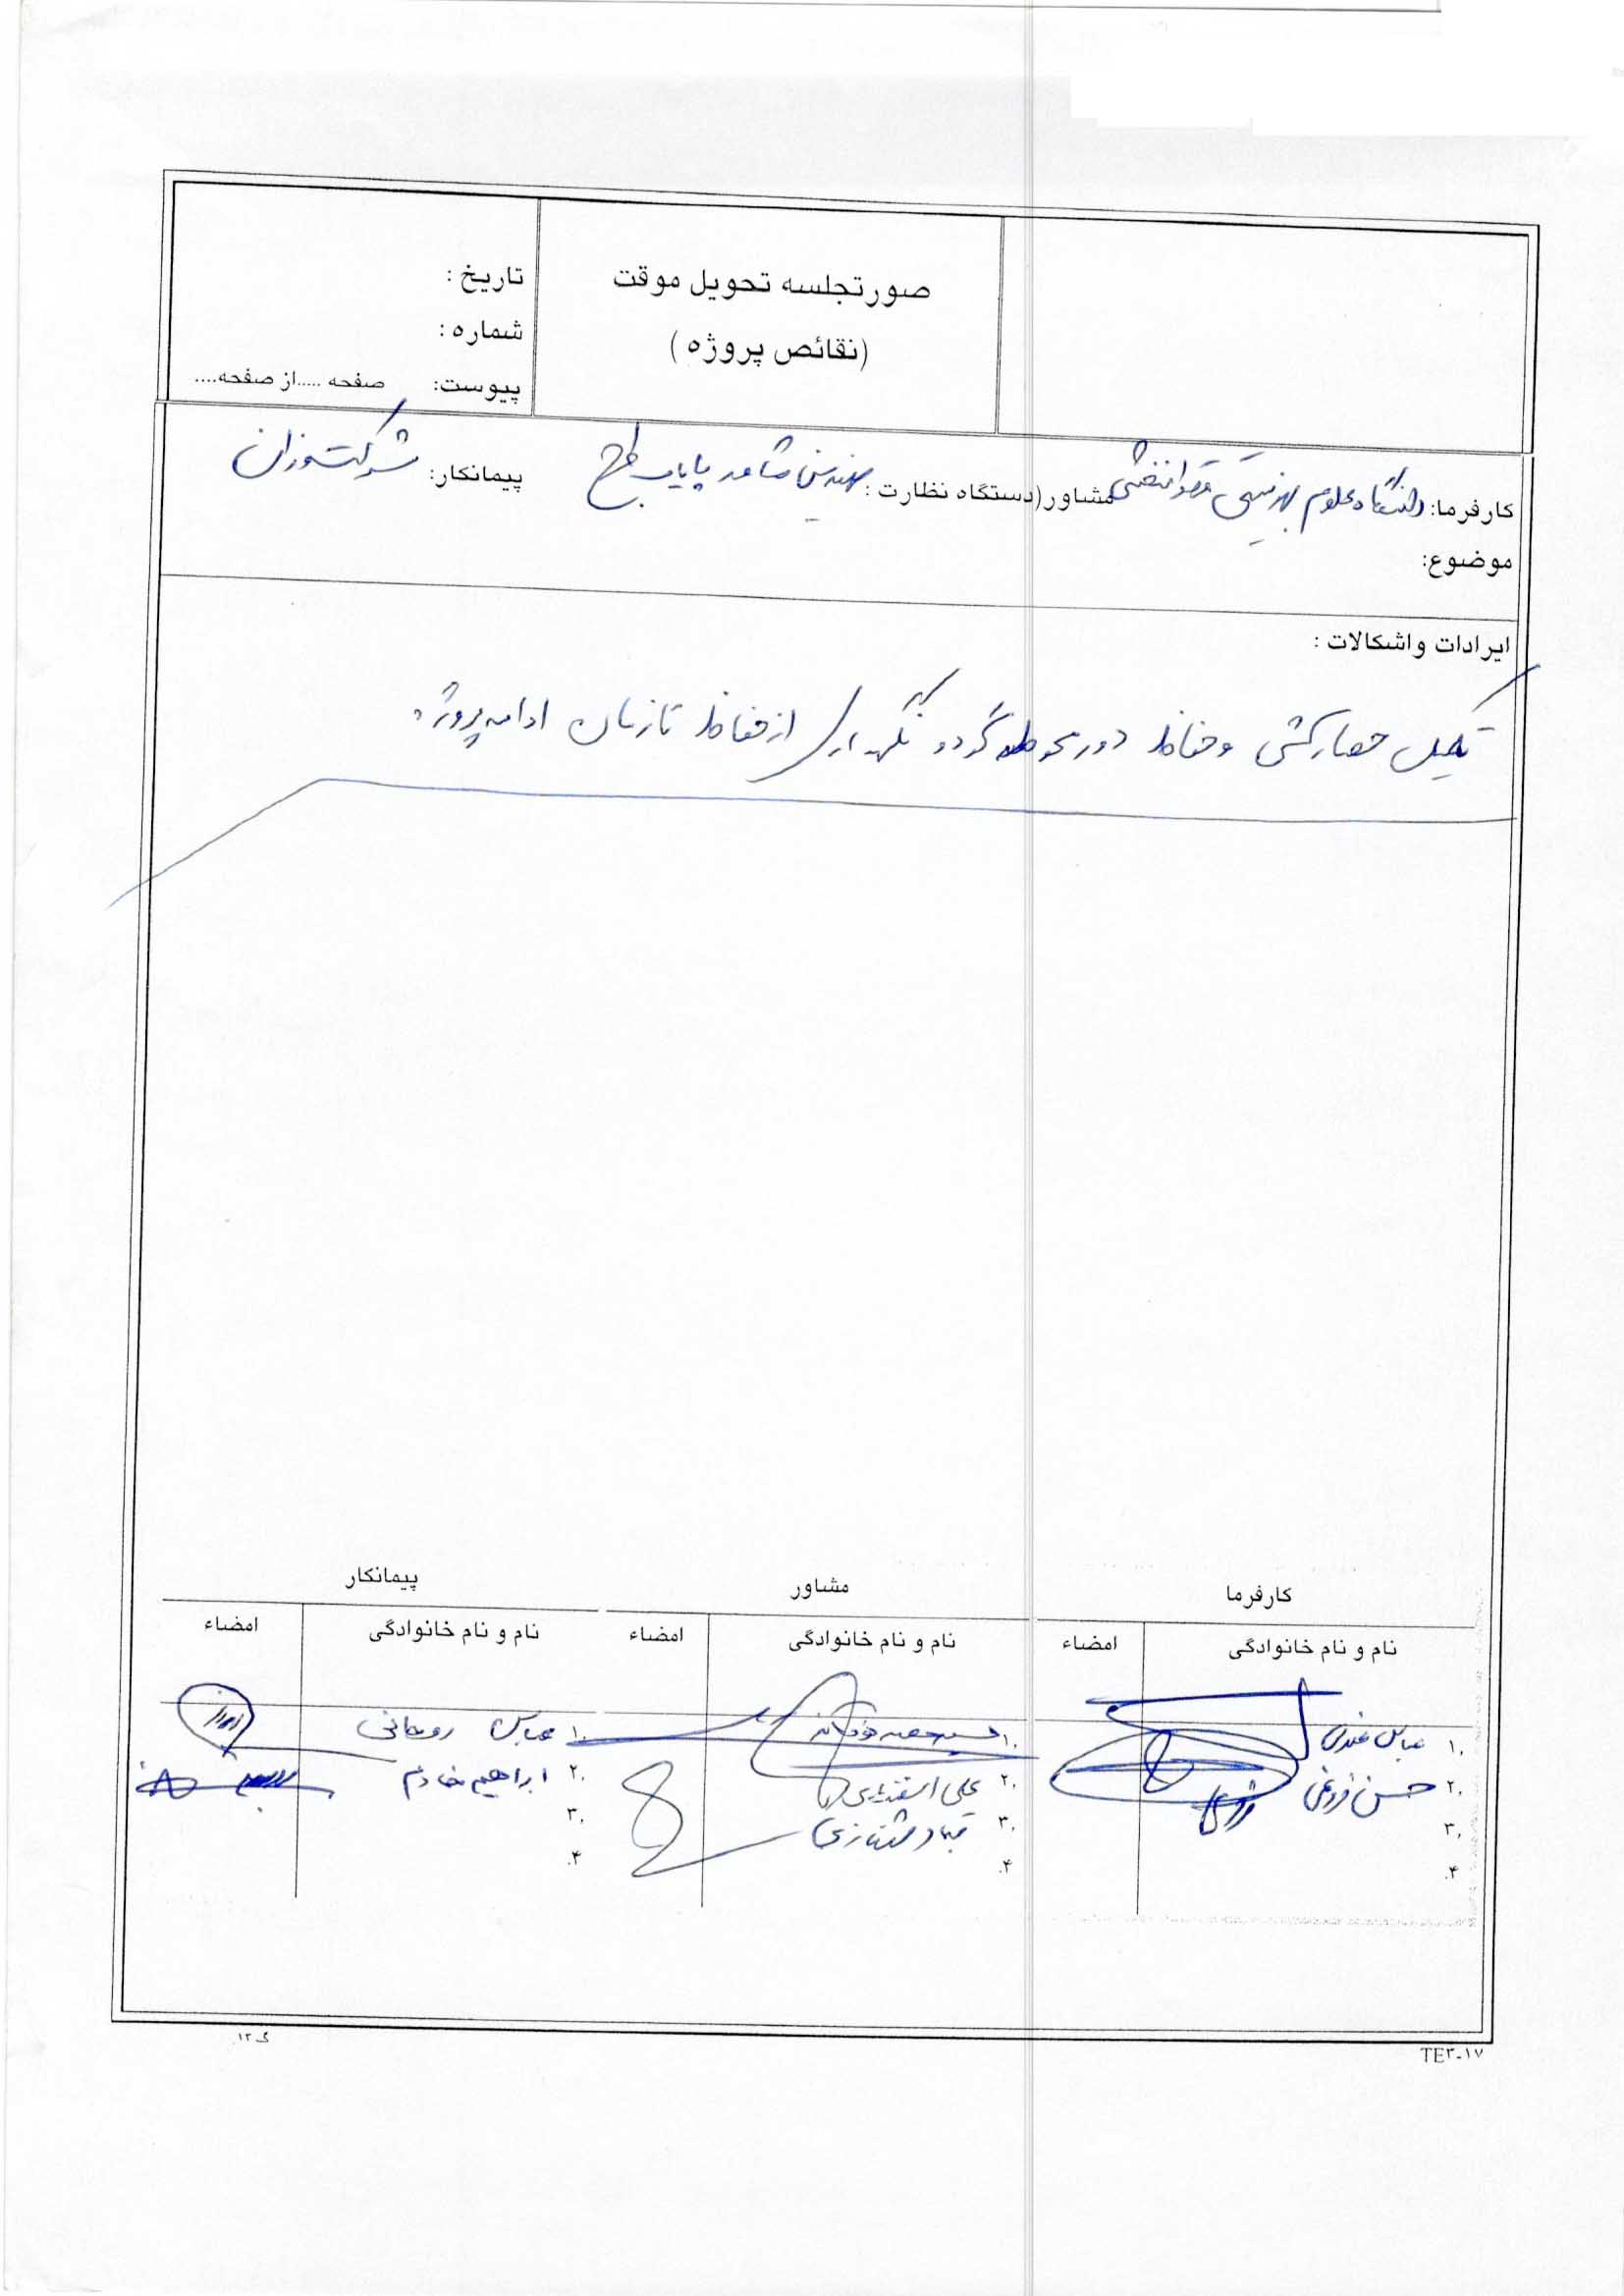 صورتجلسه تحویل موقت
(نقائص پروژه)
تاریخ :
شماره :
پیوست: صفحه .....از صفحه....
کارفرما: دانشگاه علوم بهزیستی و توانبخشی مشاور(دستگاه نظارت : مهندسین مشاور پایاب طرح پیمانکار: شرکت وزان
موضوع:
ایرادات و اشکالات :
تکمیل حصارکشی و حفاظ دور محوطه گردد نگهداری از حفاظ تا زمان ادامه پروژه
کارفرما
نام و نام خانوادگی امضاء
۱. عباس
۲. حسن فروغی
۳.
۴.
مشاور
نام و نام خانوادگی امضاء
۱.
۲. علی اسفندیاری
۳. قباد
۴.
پیمانکار
نام و نام خانوادگی امضاء
۱. عباس روحانی
۲. ابراهیم خادم
۳.
۴.
TE۳-۱۷
گ-۱۲